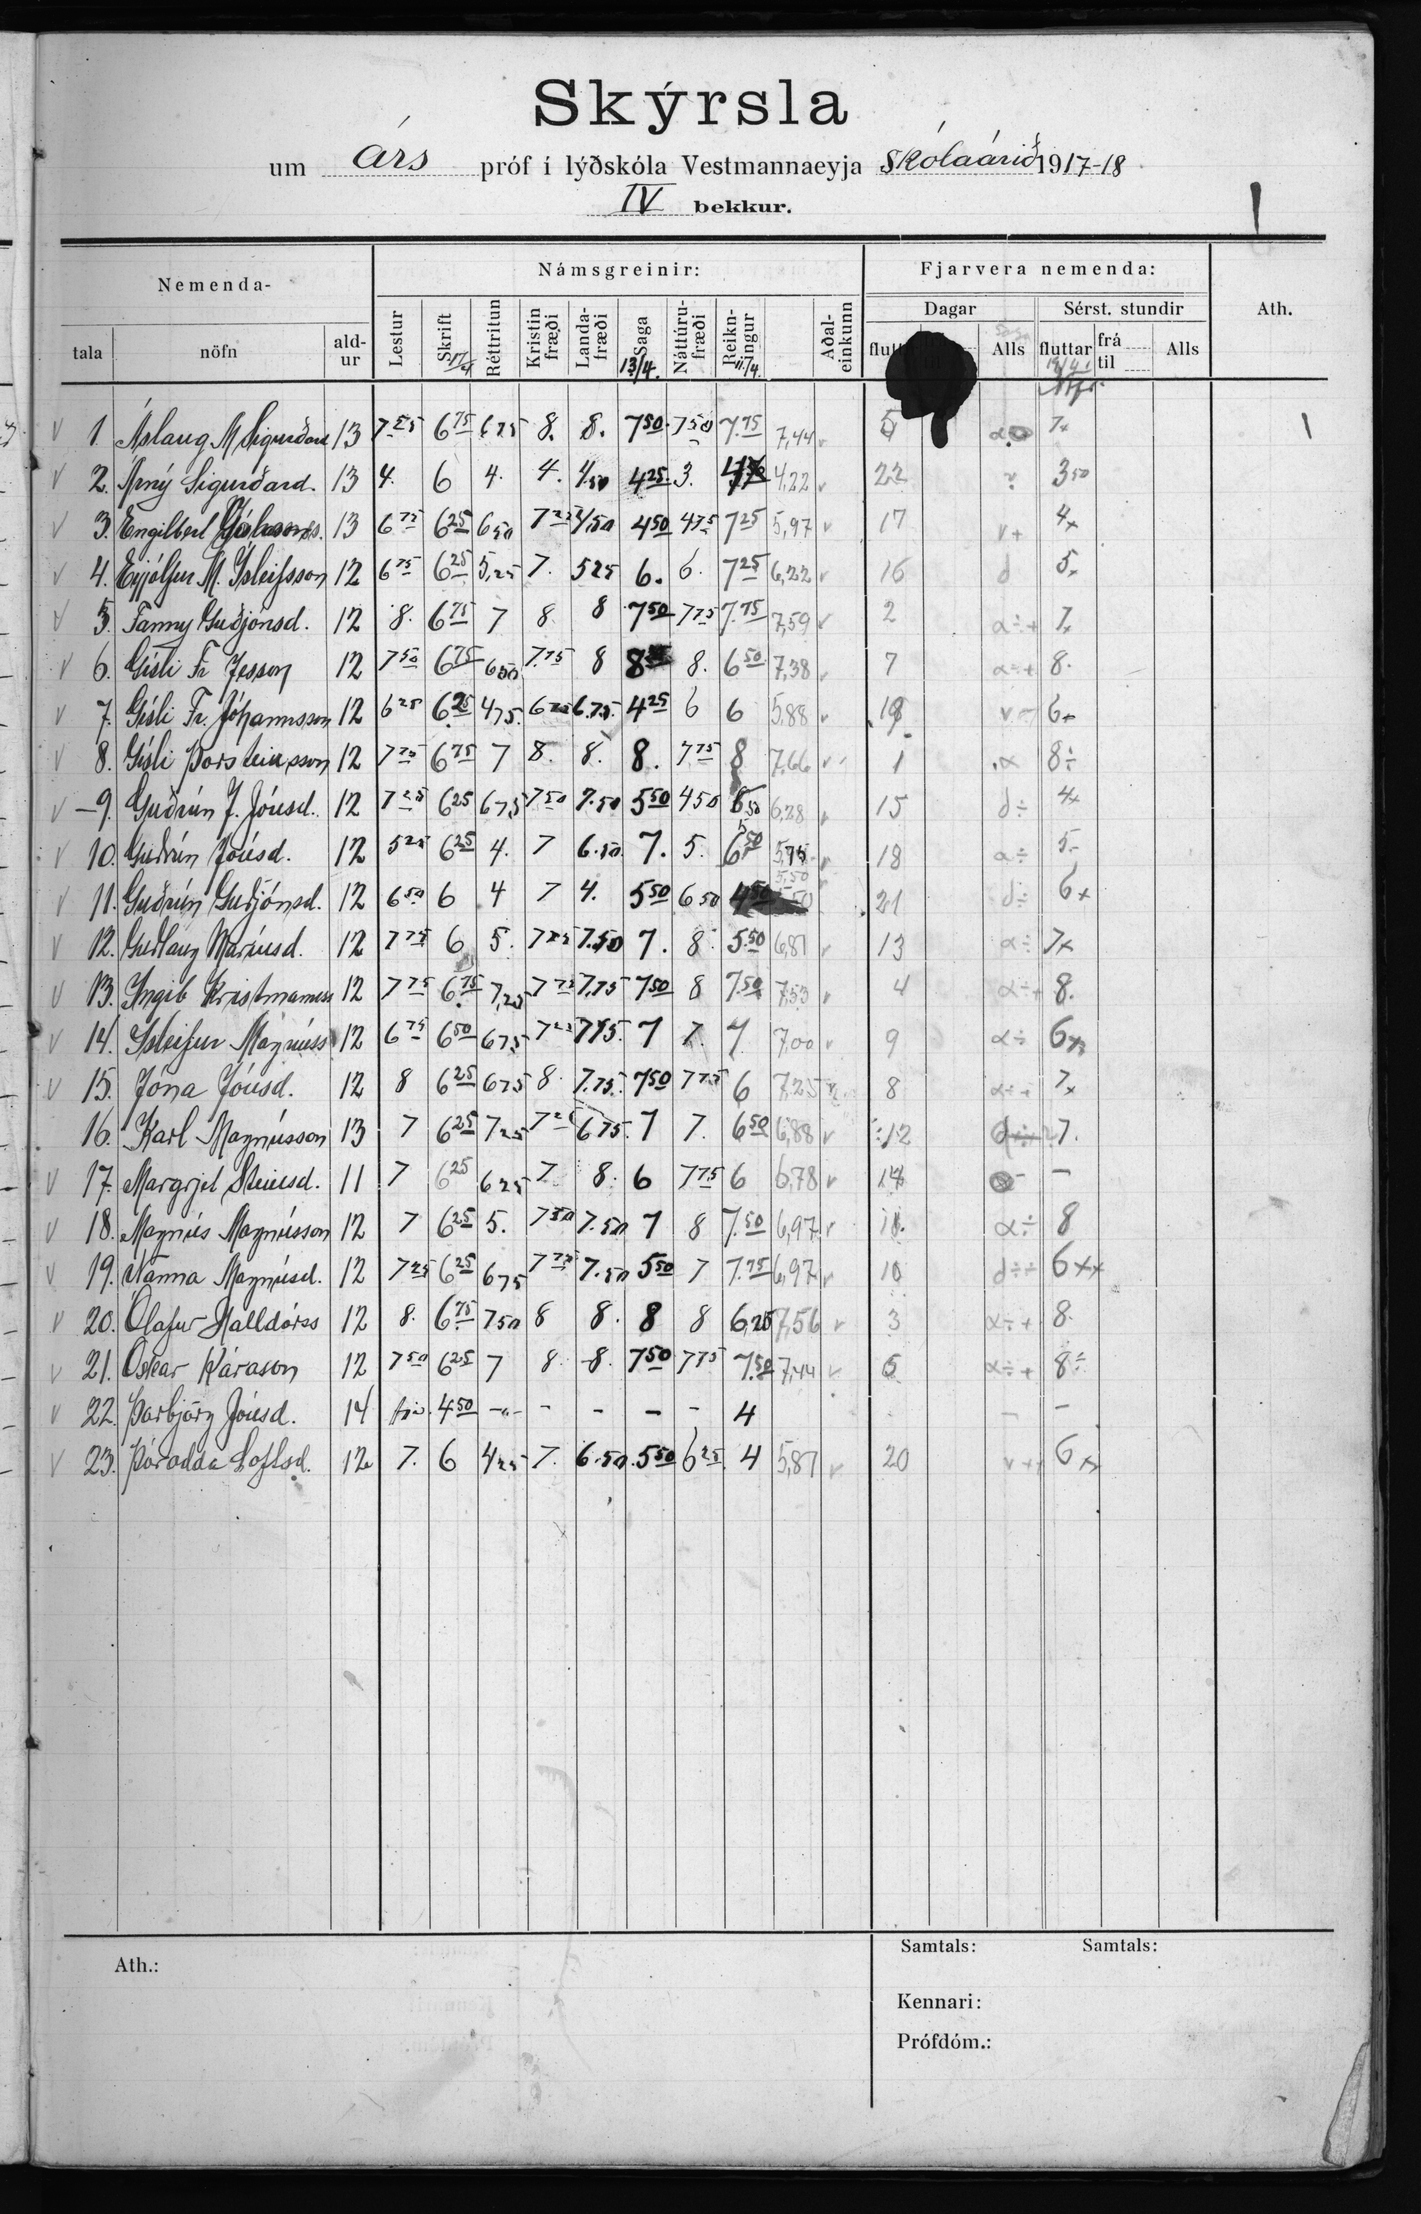 Skýrsla
um Árs próf í lýðskóla Vestmannaeyja Skólaárið 1917-18
IV bekkur.
Nemenda- Námsgreinir: Fjarvera nemenda: Ath.
Dagar Sérst. stundir
tala nöfn ald-ur Lestur Skrift Réttritun Kristin fræði Landa-fræði Saga Náttúru-fræði Reikn-ingur Aðal-einkunn Alls fluttar frá til Alls
17/4 13/4. 11/4.
1. Áslaug M Sigurðard 13 7 25 6 75 6 75 8. 8. 7 50 7 50 7.75 7,44 5 7x
2. Árný Sigurðard. 13 4. 6 4. 4. 4,50 4 25 3. 4,22 22 3 50
3. Engilbert 13 6 75 6 25 6 50 7 25 4,50 4 50 4 75 7 25 5,97 17 v+ 4x
4. Eyjólfur M. Ísleifsson 12 6 75 6 25 5,25 7. 5 25 6. 6. 7 25 6,22 16 d 5x
5. Fanny Guðjónsd. 12 8. 6 75 7 8 8 7 50 7 75 7.75 7,59 2 α÷+ 7x
6. Gísli Fr Jesson 12 7 50 6 75 6 50 7.75 8 8 8. 6 50 7,38 7 α÷+ 8.
7. Gísli Fr. Jóhannsson 12 6 25 6 25 4 75. 6 75 6.75. 4 25 6 6 5,88 19 6x
8. Gísli Þorsteinsson 12 7 75 6 75 7 8. 8. 8. 7 75 8 7,66 1 α 8÷
9. Guðrún J. Jónsd. 12 7 25 6 25 6 75 7 50 7.50 5 50 4 50 6 50 6,28 15 d÷ 4x
10. Guðrún Jónsd. 12 5 25 6 25 4. 7 6.50. 7. 5. 6 50 5,75 18 α÷ 5.-
11. Guðrún Guðjónsd. 12 6 50 6 4 7 4. 5 50 6 50 4 50 5,50 21 d÷ 6x
12. Guðlaug Maríusd. 12 7 75 6 5. 7 25 7.50 7. 8. 5.50 6,81 13 α÷ 7x
13. Ingib Kristmannss 12 7 75 6 75 7,25 7 75 7,75 7 50 8 7.50 7,53 4 α÷+ 8.
14. Ísleifur Magnúss 12 6 75 6 50 6 75 7 25 7 75. 7 7. 7. 7,00 9 α÷ 6xx
15. Jóna Jónsd. 12 8 6 25 6 75 8. 7.75. 7 50 7 75 6 7,25 8 α÷+ 7x
16. Karl Magnússon 13 7 6 25 7 25 7 25 6 75. 7 7. 6 50 6,88 12 7.
17. Margrjet Steinsd. 11 7 6 25 6 25 7. 8. 6 7 75 6 6,78 14 -
18. Magnús Magnússon 12 7 6 25 5. 7 50 7.50 7 8 7.50 6,97 11. α÷ 8
19. Nanna Magnúsd. 12 7 25 6 25 6 75 7 75 7.50 5 50 7 7.75 6,97 10 d÷÷ 6xx
20. Ólafur Halldórss 12 8. 6 75 7 50 8 8. 8 8 6,25 7,56 3 α÷+ 8.
21. Óskar Kárason 12 7 50 6 25 7 8. 8. 7 50 7 75 7.50 7,44 5 α÷+ 8÷
22. Þorbjörg Jónsd. 14 4 50 -"- - - - - 4 - -
23. Þórodda Loftsd. 12 7. 6 4 25 7. 6.50. 5 50 6 25. 4 5,81 20 6xx
Samtals: Samtals:
Ath.:
Kennari:
Prófdóm.: